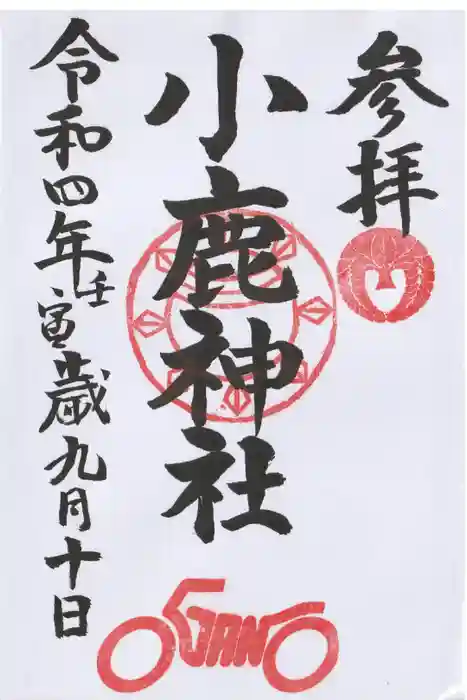 参拝
小鹿神社
令和四年壬寅歳九月十日
OJANO